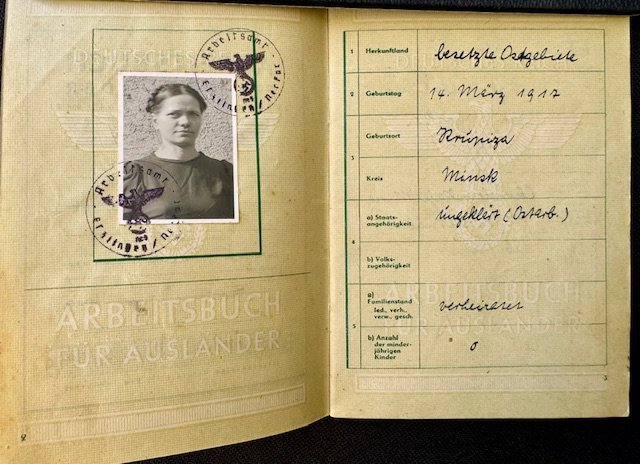 DEUTSCHES
Arbeitsamt
Esslingen / Neckar
Arbeitsamt
Esslingen / Neckar
ARBEITSBUCH
FÜR AUSLÄNDER
2
1 Herkunftland besetzte Ostgebiete
2 Geburtstag 14. März 1917
3 Geburtsort Krupiza
Kreis Minsk
4 a) Staats-
angehörigkeit ungeklärt (Ostarb.)
b) Volks-
zugehörigkeit
5 a)
Familienstand
led., verh.,
verw., gesch. verheiratet
b) Anzahl
der minder-
jährigen
Kinder 0
ARBEITSBUCH
FÜR AUSLÄNDER
3